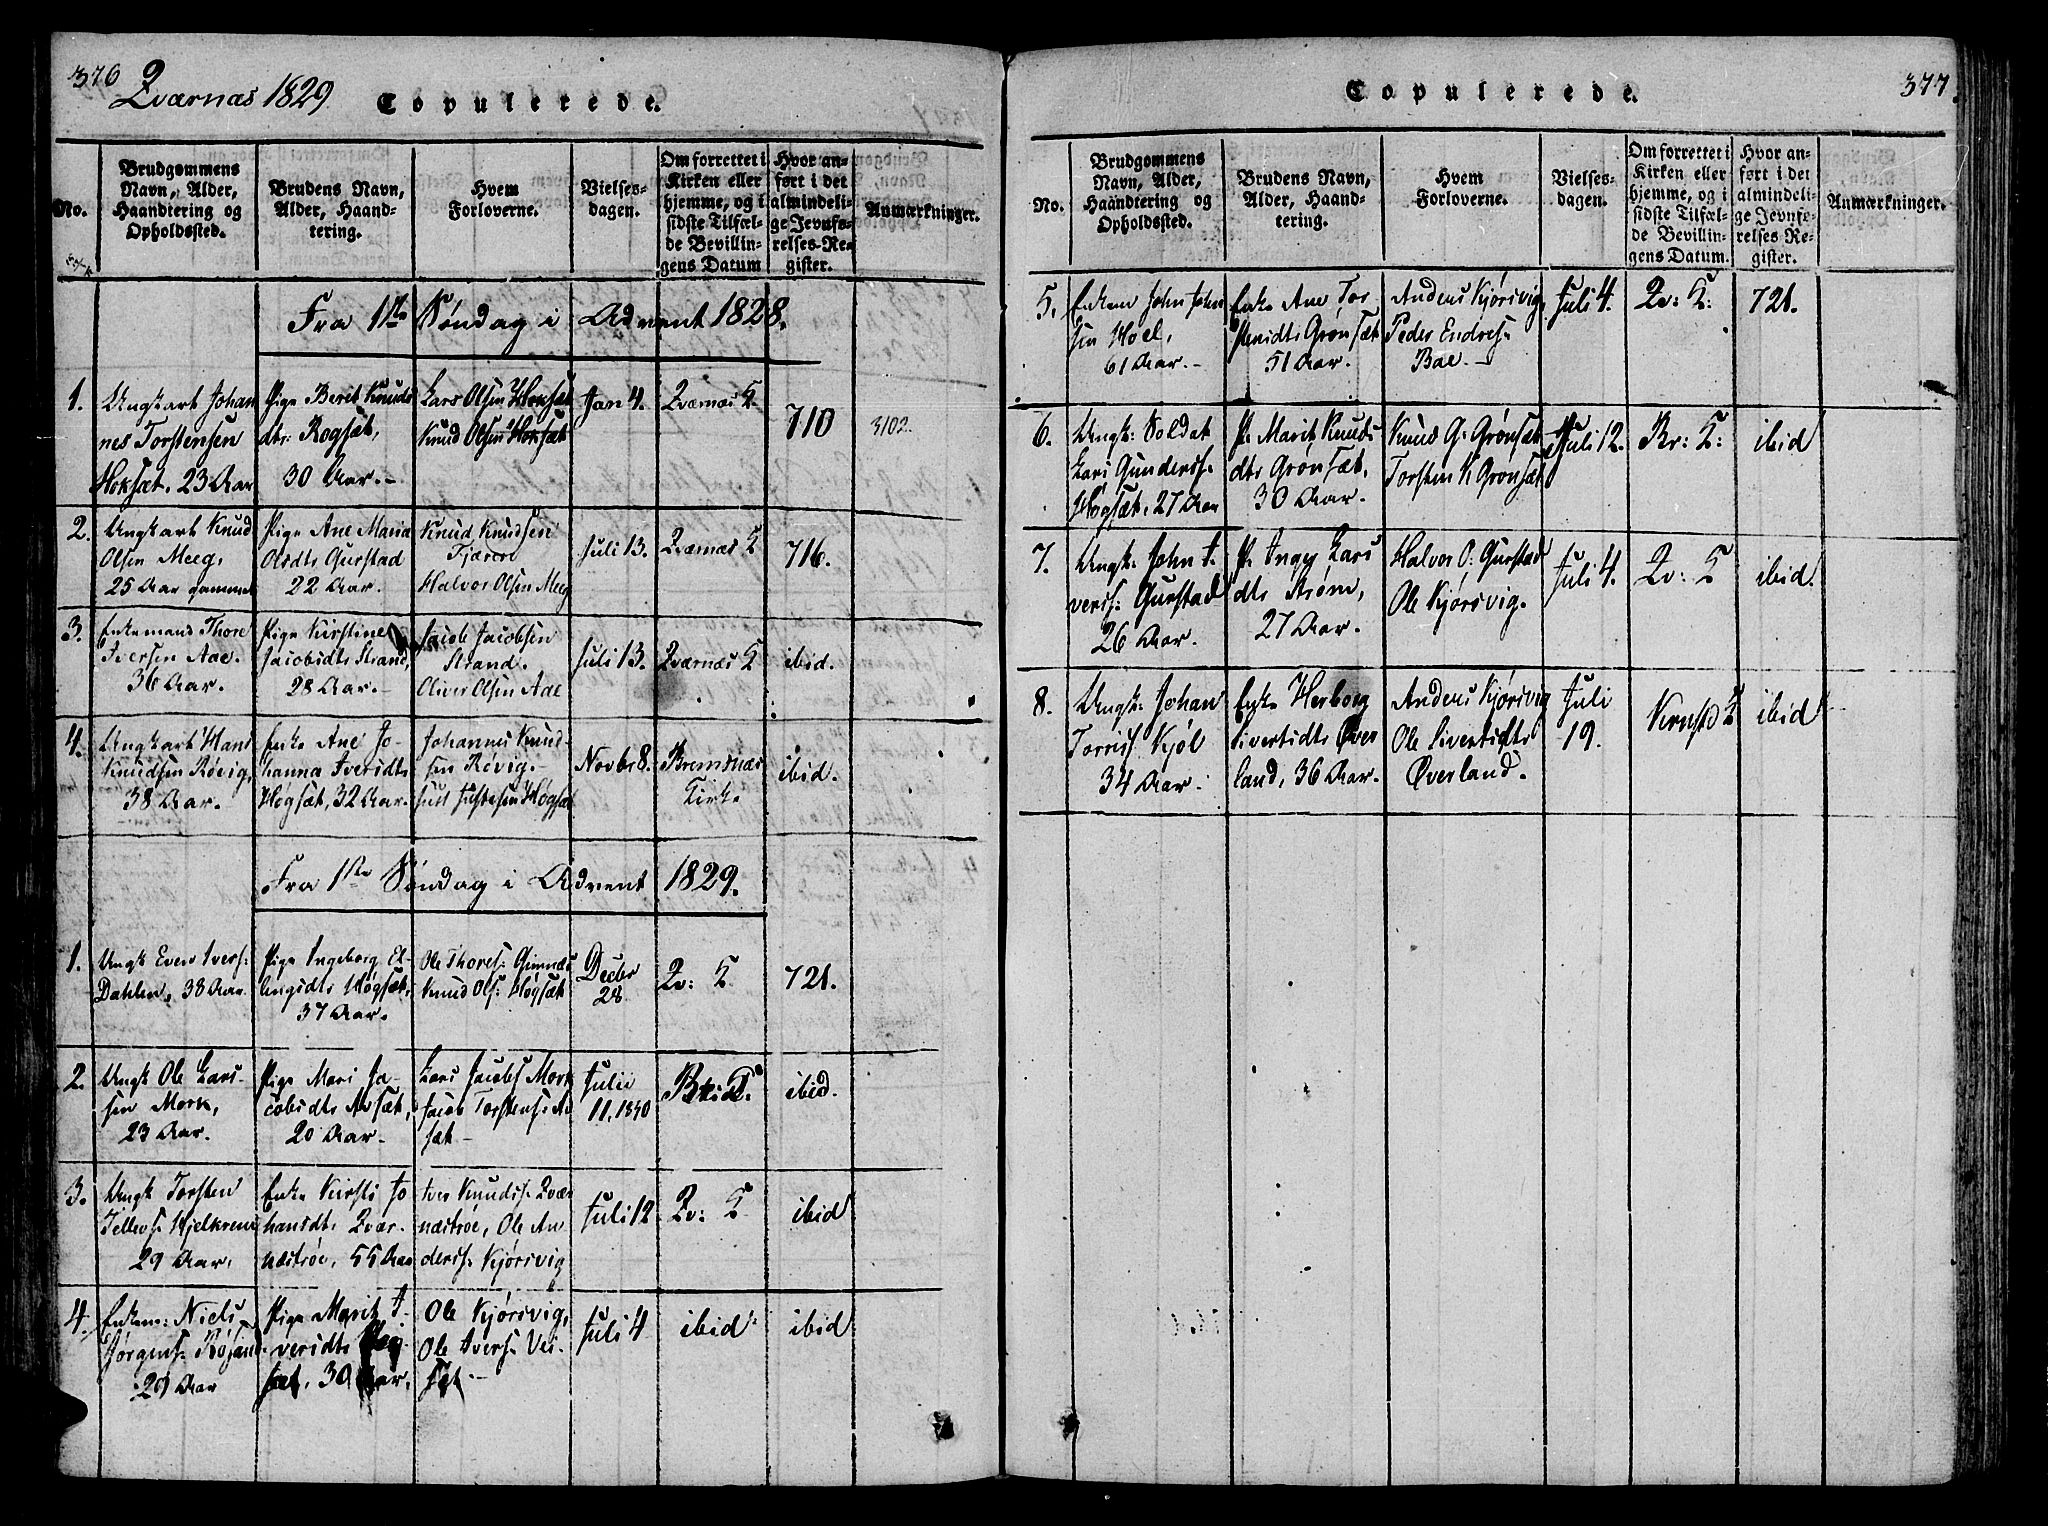 376
Qværnæs 1829
Copulerede.
No.
Brudgommens
Navn, Alder,
Haandtering og
Opholdssted.
Brudens Navn,
Alder, Haand-
tering.
Hvem
Forloverne.
Vielses-
dagen.
Om forrettet i
Kirken eller
hjemme, og i
sidste Tilfæl-
de Bevillin-
gens Datum
Hvor an-
ført i det
almindeli-
ge Jevnfø-
relses-Re-
gister.
Anmærkninger.
Fra 1ste Søndag i Advent 1828.
1.
Ungkart Johan
nes Torstensen
Hoksæt. 23 Aar
Pige Berit Knuds
dtr: Rogsæt,
30 Aar.-
Lars Olsen Hoksæt
Knud Olsen Hoksæt
Jan 4.
Qværnæs K
710
3102.
2.
Ungkart Knud
Olsen Meeg,
25 Aar gammel
Pige Ane Maria
Olsdtr Gurstad
22 Aar.
Knud Knudsen
Halvor Olsen Meeg
Juli 13.
Qværnæs K
716.
3.
Enkemand Thore
Iversen Aae.
36 Aar.
Pige Kirstine
Jacobsdtr Strand,
28 Aar.-
Jacob Jacobsen
Strand.
Oliver Olsen Aae
Juli 13.
Qværnæs K
ibid.
4.
Ungkart Hans
Knudsen Røvig,
38 Aar.
Enke Ane Jo-
hanna Iversdtr
Høgsæt, 32 Aar.
Johannes Knud-
sen Røvig.-
Juul Justesen Høgsæt
Novbr 8.
Bremsnæs
Kirke
ibid.
Fra 1ste Søndag i Advent 1829.
1.
Ungk Even Ivers:
Dahlen, 38 Aar
Pige Ingeborg El-
lingsdtr Høgsæt,
37 Aar.
Ole Thores: Gimnæs
Knud Ols: Høgsæt
Decbr
28
Qv: K
721.
2.
Ungk Ole Lars-
sen Mork,
23 Aar.
Pige Mari Ja-
cobsdtr Avsæt,
20 Aar-
Lars Jacobs Mork
Jacob Torstens: Av
sæt-
Julii
11. 1830
ibid.
3.
Ungk Torsten
29 Aar.
Enke Kirsti Jo
hansdtr Qvær-
næstrøe, 55 Aar
Iver Knuds: Qvær
næstrøe, Ole An
ders: Kjørsvig
Juli 12
Qv: K
ibid
4.
Enkem: Niels
Jørgens: Røsand
29 Aar
Pige Marit I-
versdtr Høg-
sæt, 30 Aar,
Ole Kjørsvig,
Ole Ivers: Vei-
sæt.-
Juli 4
ibid
ibid
377.
Copulerede.
No.
Brudgommens
Navn, Alder,
Haandtering og
Opholdssted.
Brudens Navn,
Alder, Haand-
tering.
Hvem
Forloverne.
Vielses-
dagen.
Om forrettet i
Kirken eller
hjemme, og i
sidste Tilfæl-
de Bevillin-
gens Datum.
Hvor an-
ført i det
almindeli-
ge Jevnfø-
relses-Re-
gister.
Anmærkninger.
5.
Enkem John John
sen Hoel,
61 Aar.-
Enke Ane Tor-
stensdtr Grønsæt
51 Aar.
Anders Kjørsvig,
Peder Endres:
Bae.-
Juli 4.
Qv: K:
721.
6.
Ungk: Soldat
Lars Gunders:
Høgsæt, 27 Aar
P. Marit Knuds
dtr Grønsæt,
30 Aar.
Knud G. Grønsæt
Torsten K Grønsæt
Juli 12.
Br: K:
ibid
7.
Ungk: John I-
vers: Gurstad
26 Aar.
P. Ingr Lars
dtr Strøm,
27 Aar.
Halvor O: Gurstad
Ole Kjørsvig.
Juli 4.
Qv: K
ibid.
8.
Ungk. Johan
Torris: Kjøl
34 Aar.
Enke Herborg
Sivertsdtr Øver
land, 36 Aar.
Anders Kjørsvig
Ole Sivertsdtr
Øverland.
Juli
19.
Krnstd K
ibid